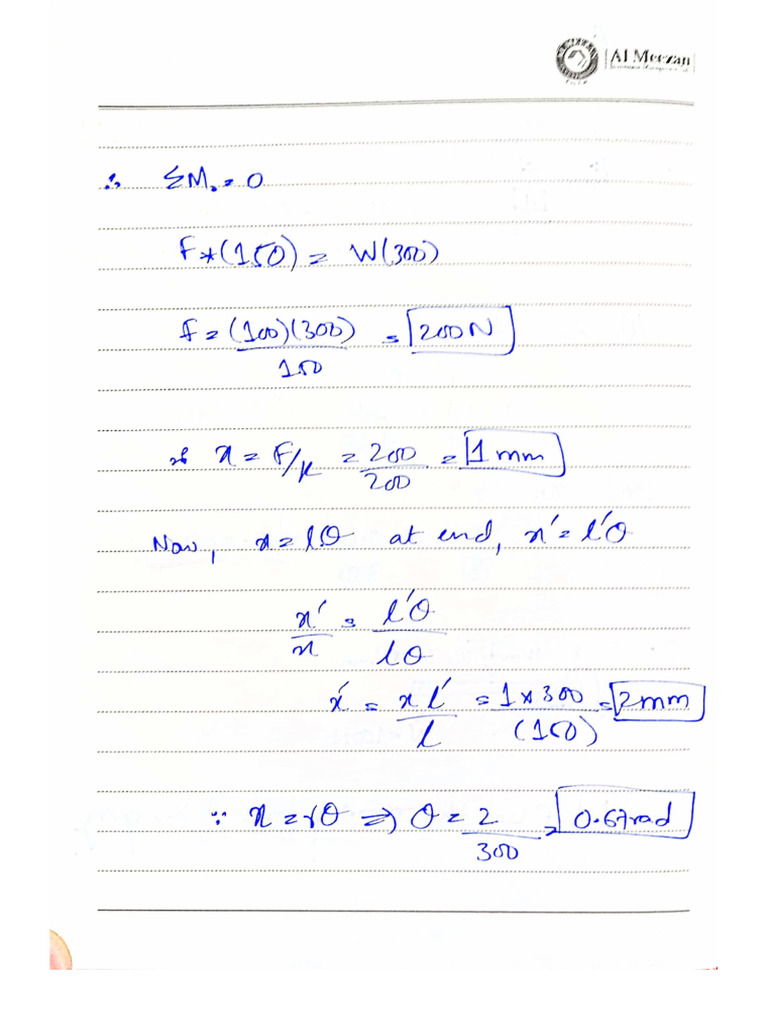 Al Meezan
∴ ΣM₀ = 0
F*(150) = W(300)
F = (100)(300)/150 = 200N
x = F/K = 200/200 = 1 mm
Now, x = lθ at end, x' = l'θ
x'/x = l'θ/lθ
x' = x l'/l = 1*300/(150) = 2mm
∵ x = rθ ⇒ θ = 2/300 = 0.67rad